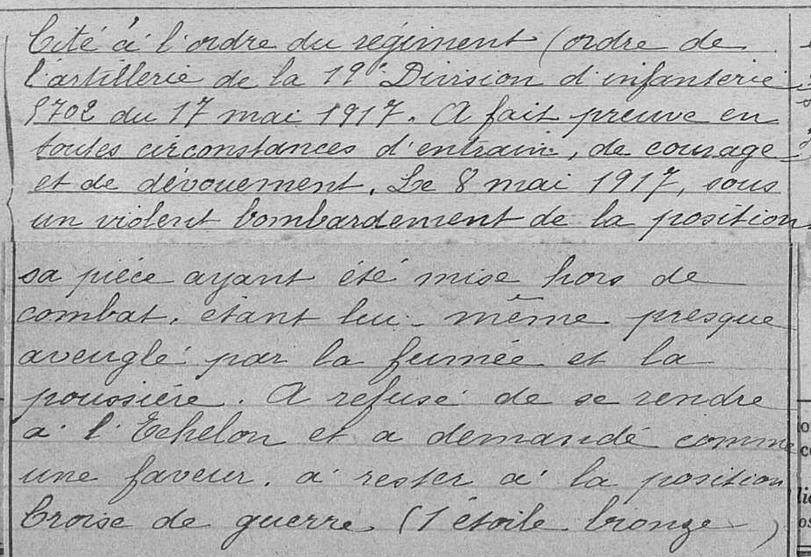 Cité à l'ordre du régiment (ordre de
l'artillerie de la 19e Division d'infanterie
9702 du 17 mai 1917. A fait preuve en
toutes circonstances d'entrain, de courage
et de dévouement. Le 8 mai 1917, sous
un violent bombardement de la position
sa pièce ayant été mise hors de
combat, étant lui-même presque
aveuglé par la fumée et la
poussière. A refusé de se rendre
à l'Echelon et a demandé comme
une faveur, à rester à la position
Croise de guerre (1 étoile bronze)